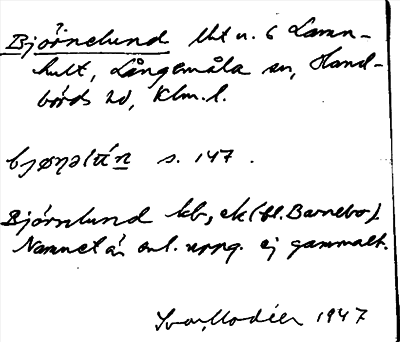 Björnelund lht u. 6 Lamn-
hult, Långemåla sn, Hand-
börds hd, Klm. l.
s. 147.
Björnlund kb, ek (bl. Barnebo).
Namnet är enl. uppg. ej gammalt.
Ivar Modéer 1947